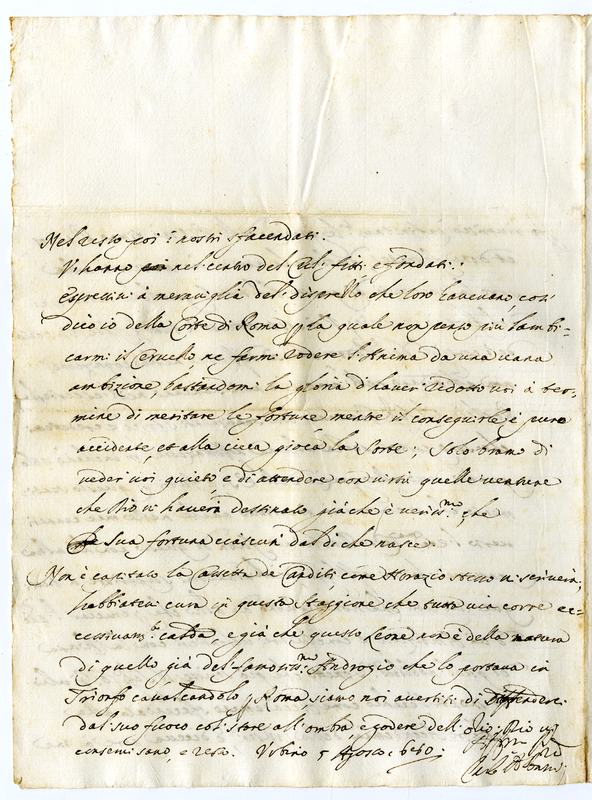 Nel resto poi i nostri sfacendati.
Vi hanno nel centro del Cul. fitti e fondati.
Espressivi à meraviglia del disprezzo che loro havevano, così
dico io della Corte di Roma p la quale non penso più lambi-
carmi il Cervello ne farmi rodere l'Anima da una vana
ambizione, bastandomi la gloria d'haver ridotto voi à ter-
mine di meritare le fortune mentre il conseguirle è puro
accidente, et alla cieca gioca la sorte; Solo bramo di
veder voi quieto e di attendere con virtù quelle venture
che Dio vi haverà destinato, già che è veriss.mo che
Sua fortuna ciascun' dal dì che nasce.
Non è capitato la Cassetta de Canditi come Horazio stesso vi scriverà,
habbiatevi cura in questa staggione che tutta via corre ec-
cessivam.te calda, e già che questo Leone non è della natura
di quello già del famosiss.mo Androgio che lo portava in
Trionfo cavalcandolo p Roma, siamo noi avertiti di diffenderci
dal suo fuoco col stare all'ombra e godere dell'ozio; Dio vi
conservi sano, e resto. Urbino 5 Agosto 1660.